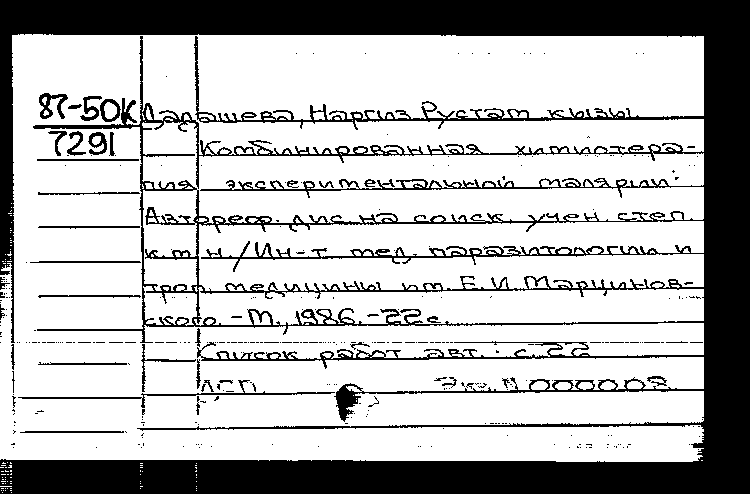 87-50К Дадашева, Наргиз Рустам кызы.
7291 Комбинированная химиотера-
пия экспериментальной малярии:
Автореф. дис. на соиск. учен. степ.
к.м.н./Ин-т мед. паразитологии и
троп. медицины им. Е.И. Марцинов-
ского. -М., 1986. -22с.
Список работ авт.: с. 22
ДСП. Экз. N 000008.